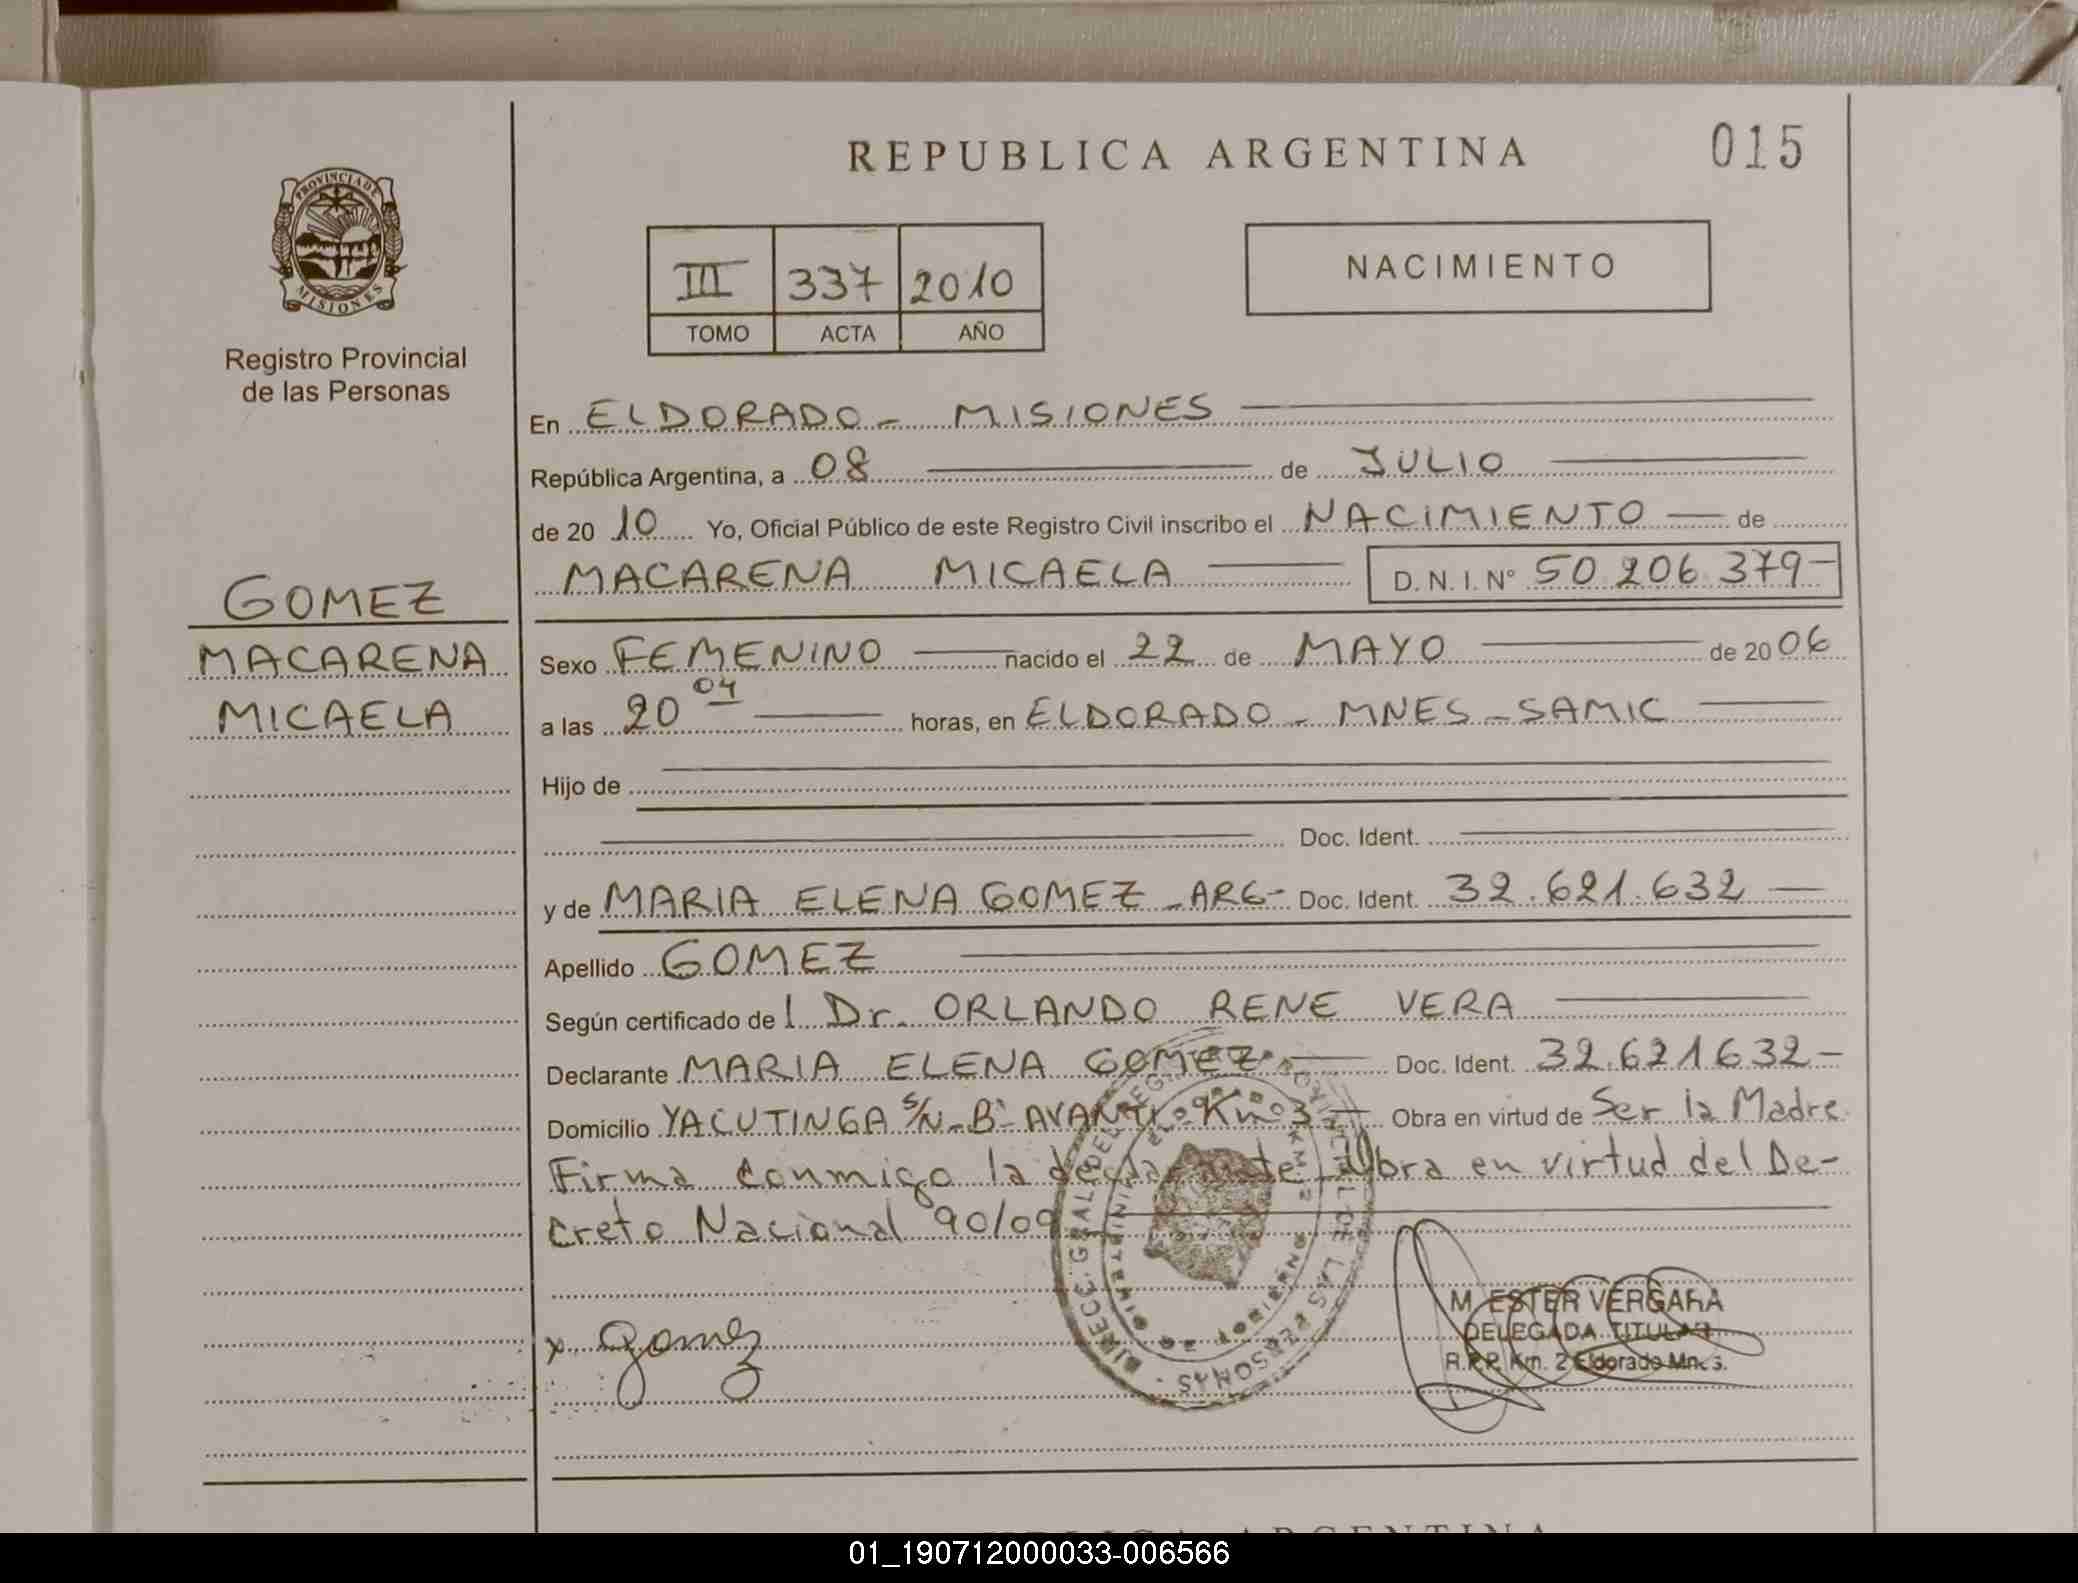 REPUBLICA ARGENTINA
015
PROVINCIA DE MISIONES
Registro Provincial
de las Personas
III 337 2010
TOMO ACTA AÑO
NACIMIENTO
En ELDORADO - MISIONES
República Argentina, a 08 de JULIO
de 20 10 Yo, Oficial Público de este Registro Civil inscribo el NACIMIENTO de
MACARENA MICAELA D.N.I. Nº 50.206.379-
GOMEZ
MACARENA
MICAELA
Sexo FEMENINO nacido el 22 de MAYO de 20 06
a las 20 04 horas, en ELDORADO - MNES - SAMIC
Hijo de
Doc. Ident.
y de MARIA ELENA GOMEZ - ARG- Doc. Ident. 32.621.632
Apellido GOMEZ
Según certificado de l Dr. ORLANDO RENE VERA
Declarante MARIA ELENA GOMEZ Doc. Ident. 32.621632-
Domicilio YACUTINGA S/N - Bº AVANTI Km 3 Obra en virtud de Ser la Madre
Firma conmigo la declarante - Obra en virtud del De-
creto Nacional 90/09
x Gomez
M. ESTER VERGARA
DELEGADA TITULAR
R.P.P. Km. 2 Eldorado Mnes.
01_190712000033-006566